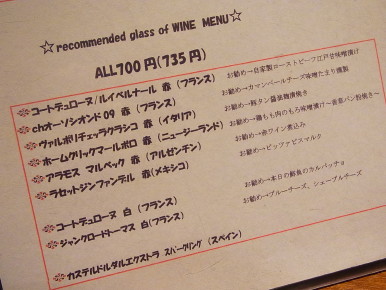 ☆recommended glass of WINE MENU☆
ALL700円(735円)
コートデュローヌ/ルイベルナール 赤 (フランス) お勧め→自家製ローストビーフ江戸甘味噌漬け
chオーソシオンド 09 赤 (フランス) お勧め→カマンベールチーズ味噌たまり漬製
ヴァルポリチェッラクラシコ 赤 (イタリア) お勧め→豚タン醤油麹漬焼き
ホームクリックマールボロ 赤 (ニュージーランド) お勧め→鶏もも肉のもろみ噌漬け~釜窯パン粉焼き~
アラモス マルベック 赤 (アルゼンチン) お勧め→赤ワイン煮込み
ラセットジンファンデル 赤(メキシコ) お勧め→ビッファビスマルク
コートデュローヌ 白 (フランス) お勧め→本日の鮮魚のカルパッチョ
ジャンクロードトーマス 白(フランス) お勧め→ブルーチーズ、シェーブルチーズ
カステルドルダルエクストラ スパークリング (スペイン)